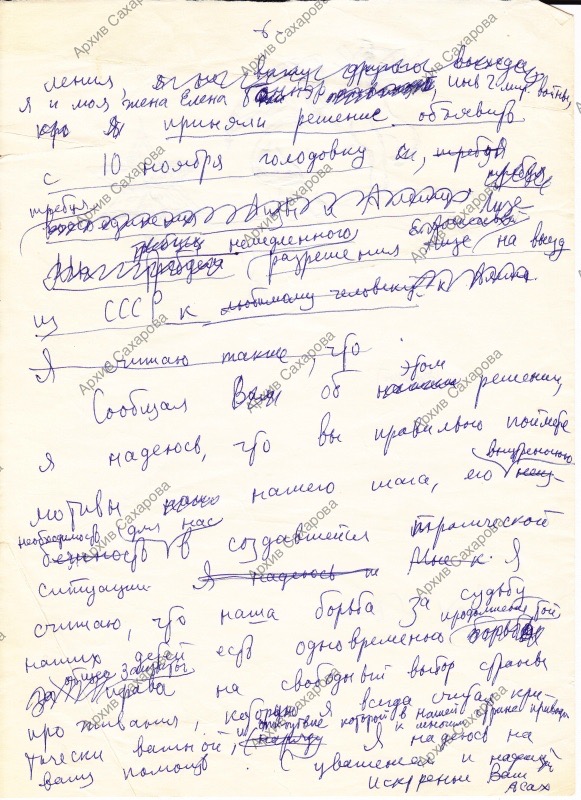 6.
ления,
Я и моя жена Елена Боннэр, инв. 2 гр. войны,
приняли решение объявить
с 10 ноября голодовку,
требуя
требуя немедленного
разрешения Лизе на выезд
из СССР к любимому человеку.
Я считаю также, что
Сообщая Вам об этом решении,
я надеюсь, что вы правильно поймете
мотивы нашего шага, его внутреннюю
необходимость для нас
в создавшейся трагической
ситуации. Я надеюсь Я
считаю, что наша борьба за судьбу
наших детей есть одновременно продолжение борьбы
общей защиты
права на свободный выбор страны
проживания, которую я всегда считал кри-
тически важной, отсутствие которой в нашей стране приводит
к Я надеюсь на
вашу помощь
С уважением и надеждой
Искренне Ваш
АСах
Архив Сахарова